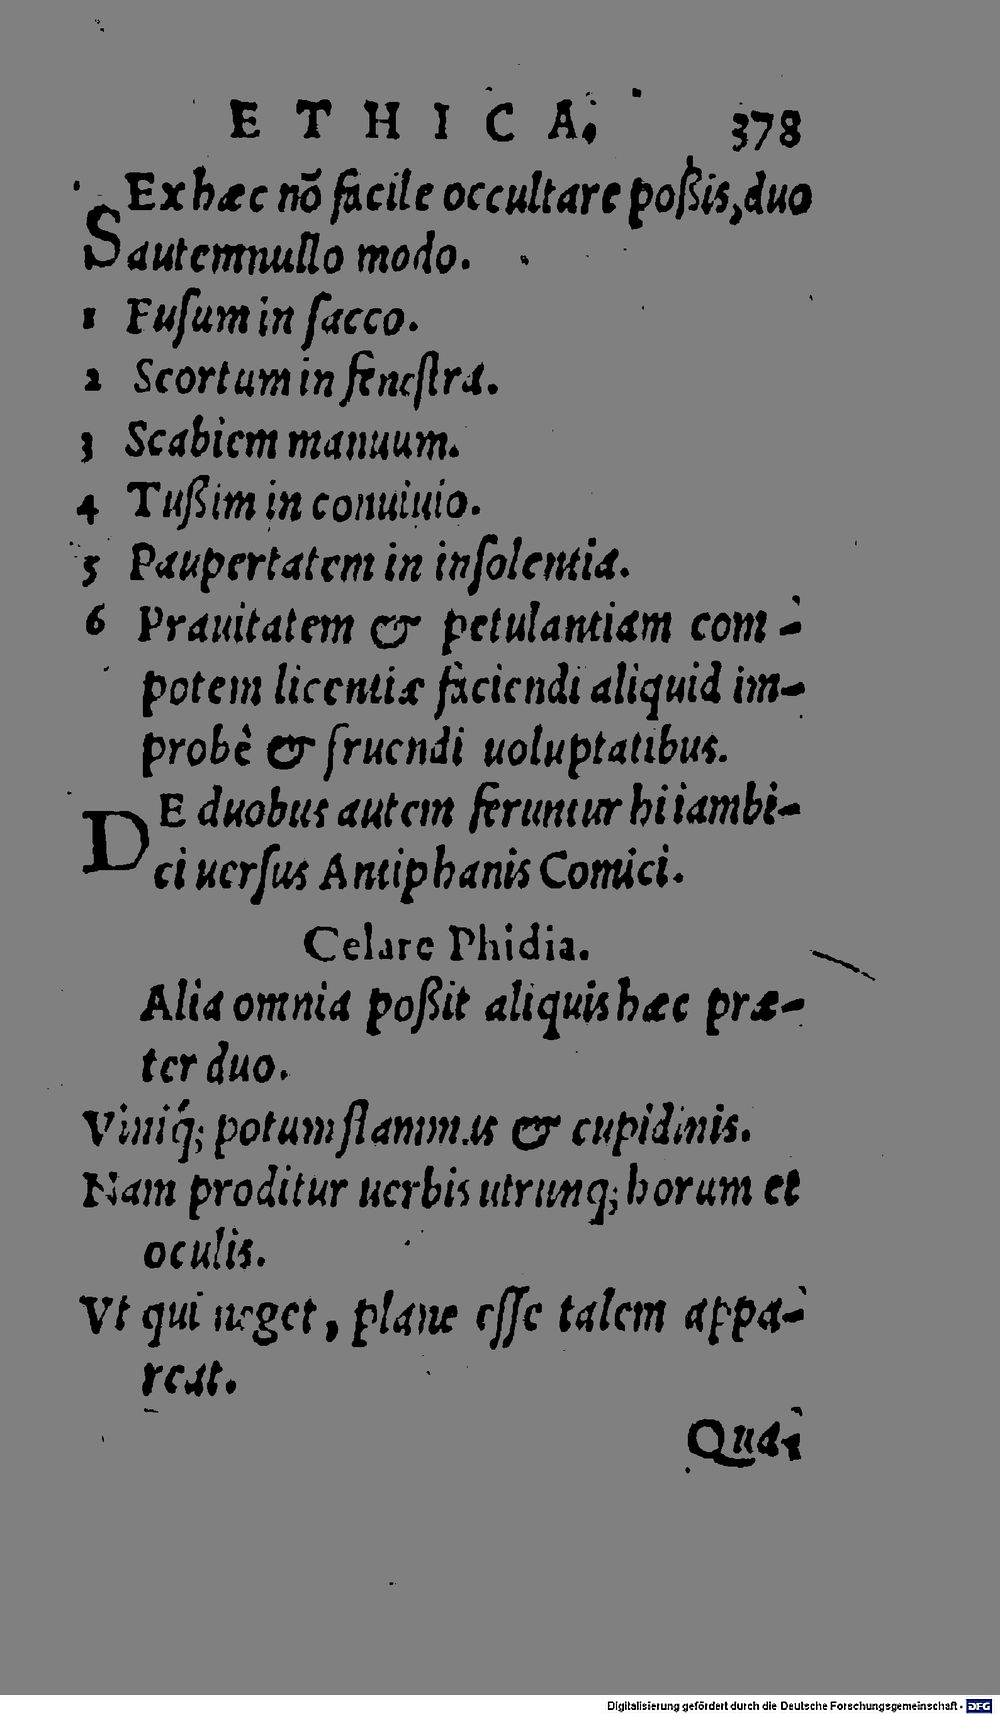 ETHICA. 378
SEx hæc nõ facile occultare poßis, duo
autem nullo modo.
1 Fuſum in ſacco.
2 Scortum in feneſtra.
3 Scabiem manuum.
4 Tußim in conuiuio.
5 Paupertatem in inſolentia.
6 Prauitatem & petulantiam com-
potem licentiæ faciendi aliquid im-
probè & fruendi uoluptatibus.
DE duobus autem feruntur hi iambi-
ci uerſus Antiphanis Comici.
Celare Phidia.
Alia omnia poßit aliquis hæc præ-
ter duo.
Viniq́; potum flammas & cupidinis.
Nam proditur uerbis utrunq; horum et
oculis.
Vt qui neget, plane eſſe talem appa-
reat.
Quæ
Digitalisierung gefördert durch die Deutsche Forschungsgemeinschaft - DFG